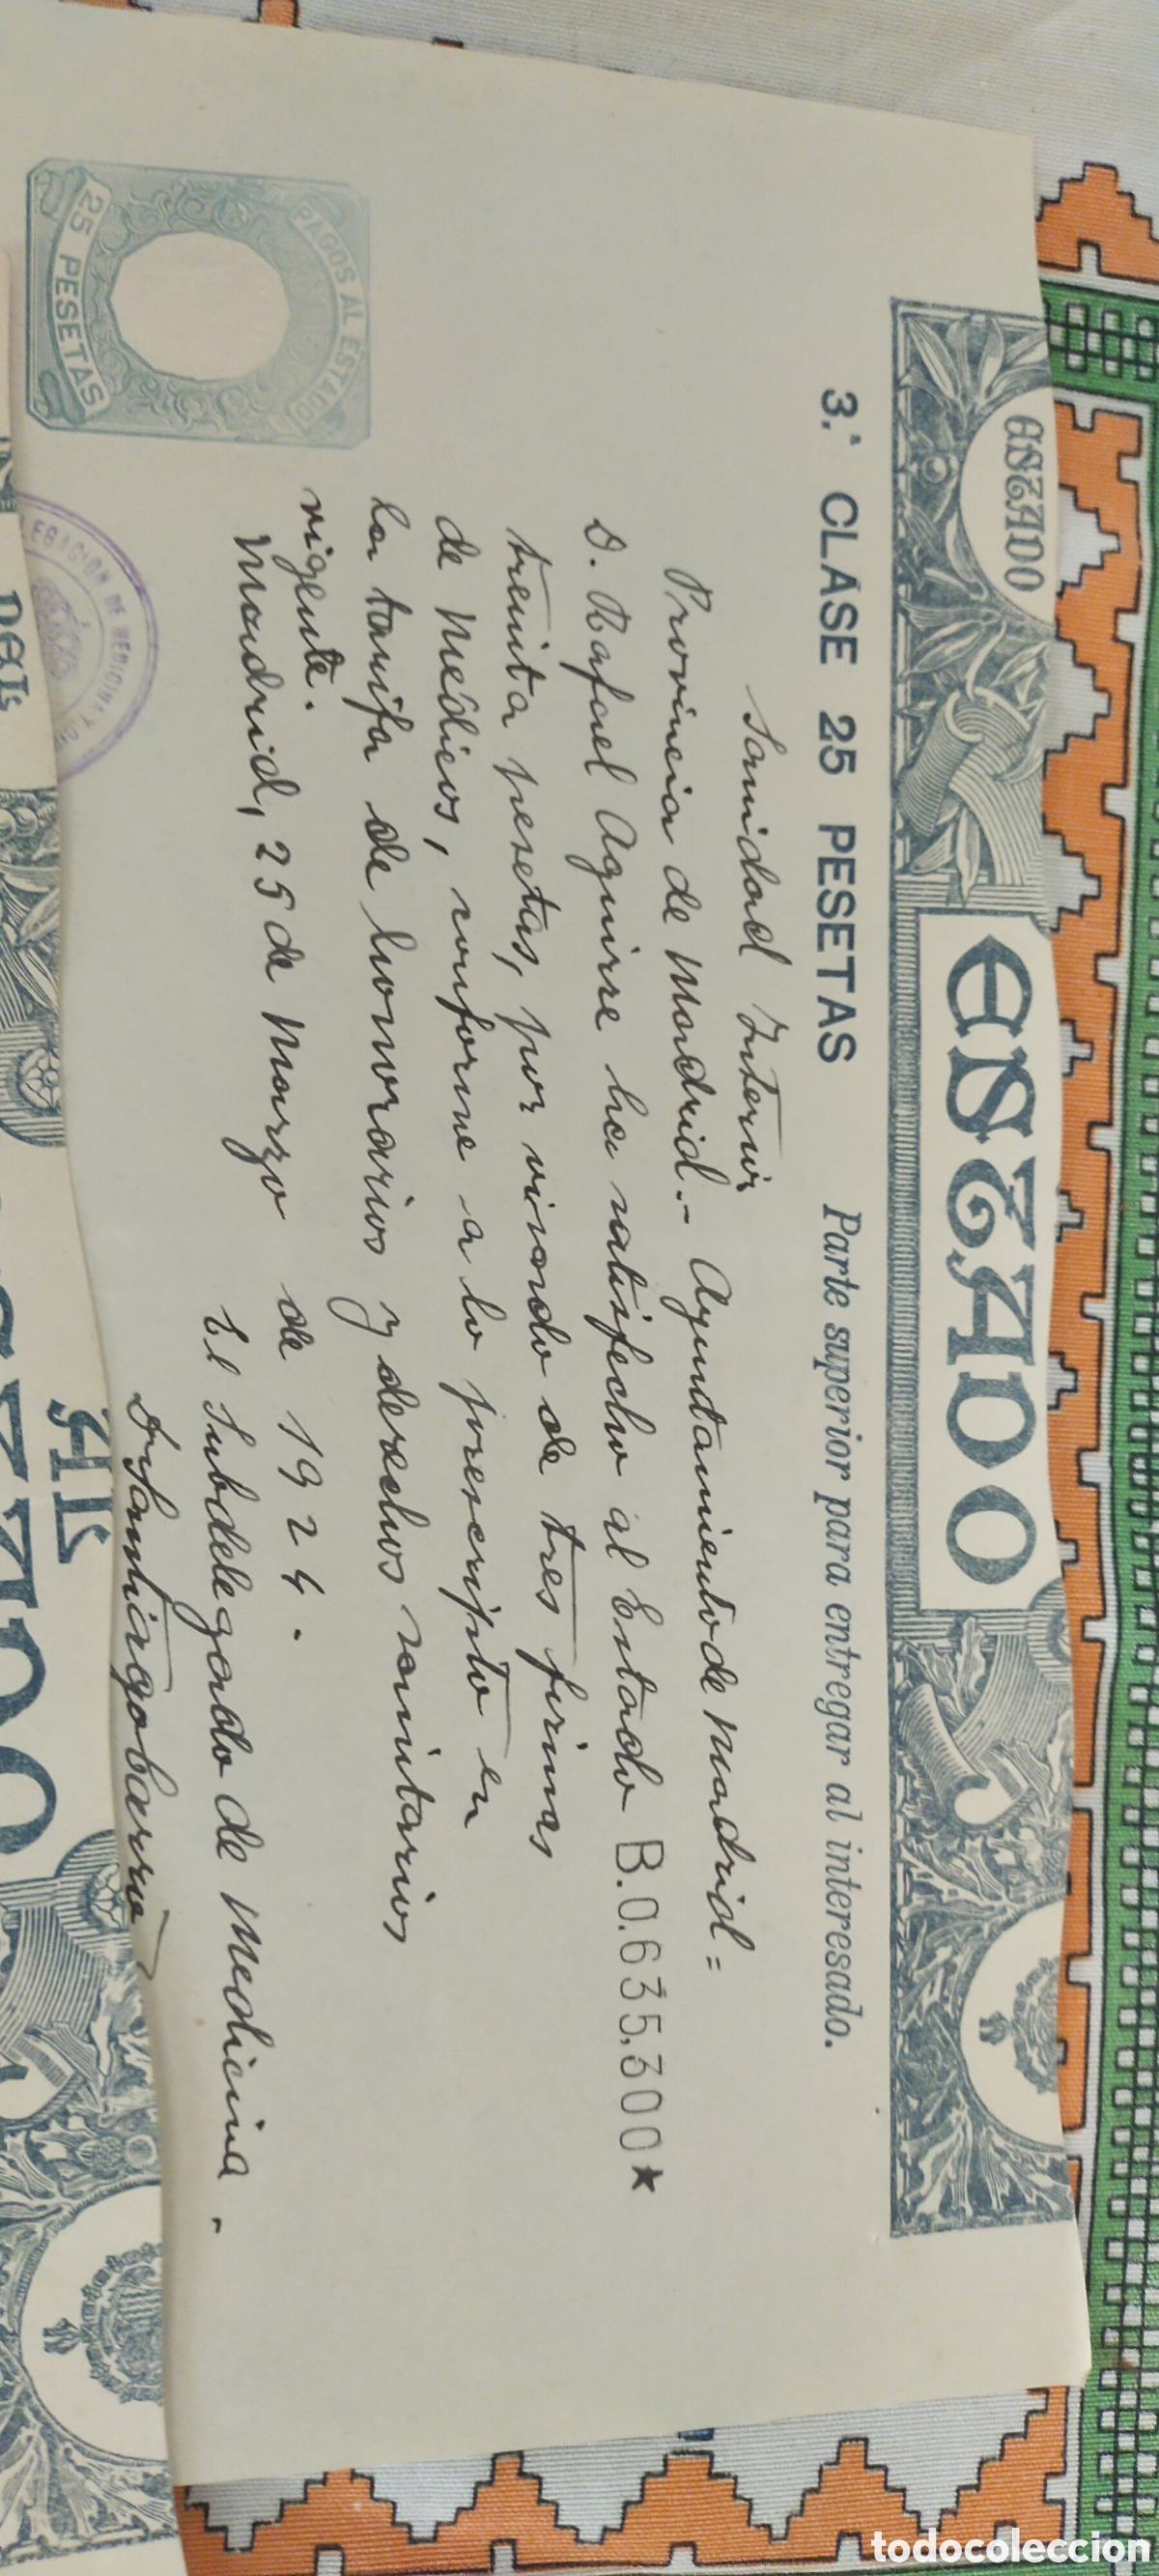 ESTADO
ESTADO
3.ª CLASE 25 PESETAS Parte superior para entregar al interesado.
PAGOS AL ESTADO
25 PESETAS
Sanidad Interior
Provincia de Madrid.- Ayuntamiento de Madrid =
D. Rafael Aguirre ha satisfecho al Estado B.0.635,300★
treinta pesetas, por visado de tres firmas
de Médicos, conforme a lo prescripto en
la tarifa de honorarios y derechos sanitarios
vigente.
Madrid, 25 de Marzo de 1924.
El Subdelegado de Medicina.
LEGACIÓN DE MEDICINA Y
todocoleccion